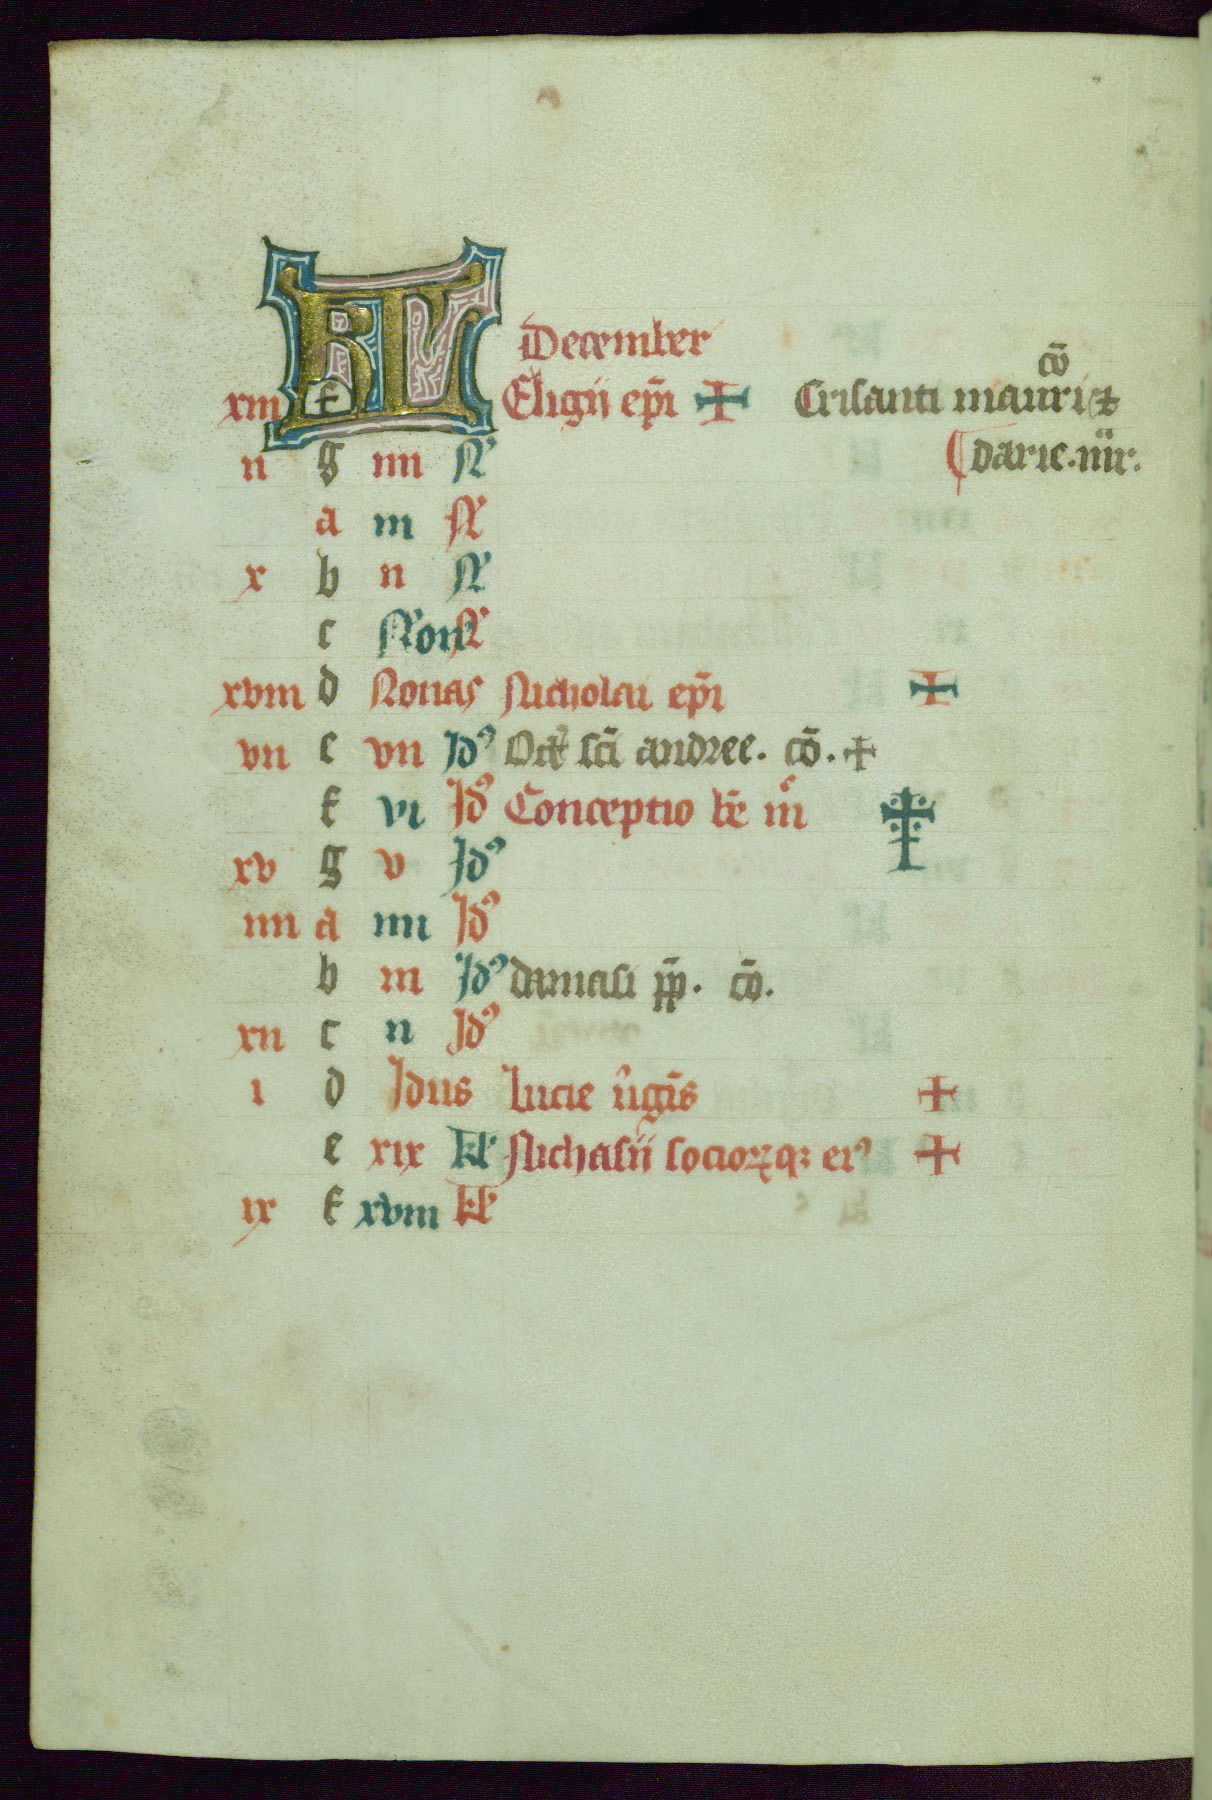 December
cō
xiii f KL Eligii ep̄i + Crisanti mauri ⁊
¶ darie. mr̄.
ii g iiii N'
a iii N'
x b ii N'
c Non' N'
xviii d Nonas Nicholai ep̄i +
vii e vii Id' Oct' sc̄i andree. cō. +
f vi Id' Conceptio bē m̄
xv g v Id'
iiii a iiii Id'
b iii Id' damasi pp̄. cō.
xii c ii Id'
i d Idus Lucie v̄gīs +
e xix kl' Nichasii socioꝝqꝫ ei' +
ix f xviii kl'